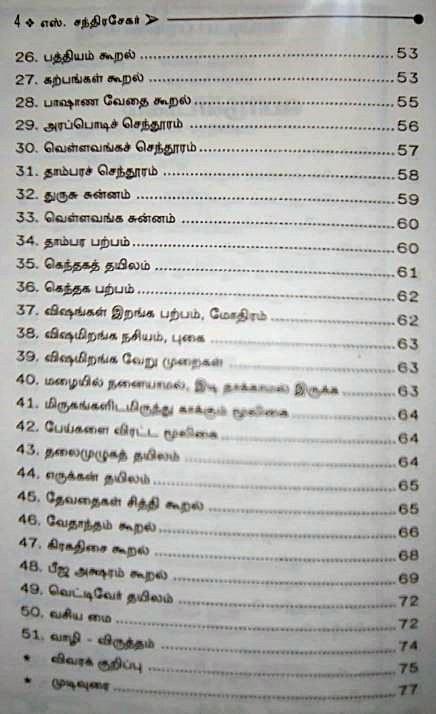 4 ❖ எஸ். சந்திரசேகர் ➢
26. பத்தியம் கூறல் ........ 53
27. கற்பங்கள் கூறல் ........ 53
28. பாஷாண வேதை கூறல் ........ 55
29. அரப்பொடிச் செந்தூரம் ........ 56
30. வெள்ளவங்கச் செந்தூரம் ........ 57
31. தாம்பரச் செந்தூரம் ........ 58
32. துருசு சுன்னம் ........ 59
33. வெள்ளவங்க சுன்னம் ........ 60
34. தாம்பர பற்பம் ........ 60
35. கெந்தகத் தயிலம் ........ 61
36. கெந்தக பற்பம் ........ 62
37. விஷங்கள் இறங்க பற்பம், மோதிரம் ........ 62
38. விஷமிறங்க நசியம், புகை ........ 63
39. விஷமிறங்க வேறு முறைகள் ........ 63
40. மழையில் நனையாமல், இடி தாக்காமல் இருக்க ........ 63
41. மிருகங்களிடமிருந்து காக்கும் மூலிகை ........ 64
42. பேய்களை விரட்ட மூலிகை ........ 64
43. தலைமுழுகத் தயிலம் ........ 64
44. எருக்கன் தயிலம் ........ 65
45. தேவதைகள் சித்தி கூறல் ........ 65
46. வேதாந்தம் கூறல் ........ 66
47. கிரகதிசை கூறல் ........ 68
48. பீஜ அக்ஷரம் கூறல் ........ 69
49. வெட்டிவேர் தயிலம் ........ 72
50. வசிய மை ........ 72
51. வாழி - விருத்தம் ........ 74
* விவரக் குறிப்பு ........ 75
* முடிவுரை ........ 77